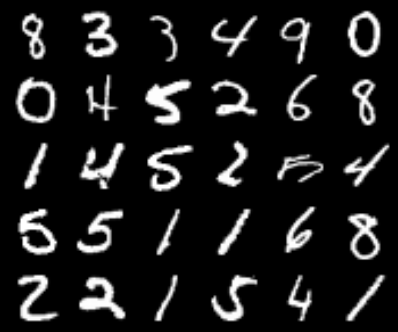 8 3 3 4 9 0
0 4 5 2 6 8
1 4 5 2 4
5 5 1 1 6 8
2 2 1 5 4 1